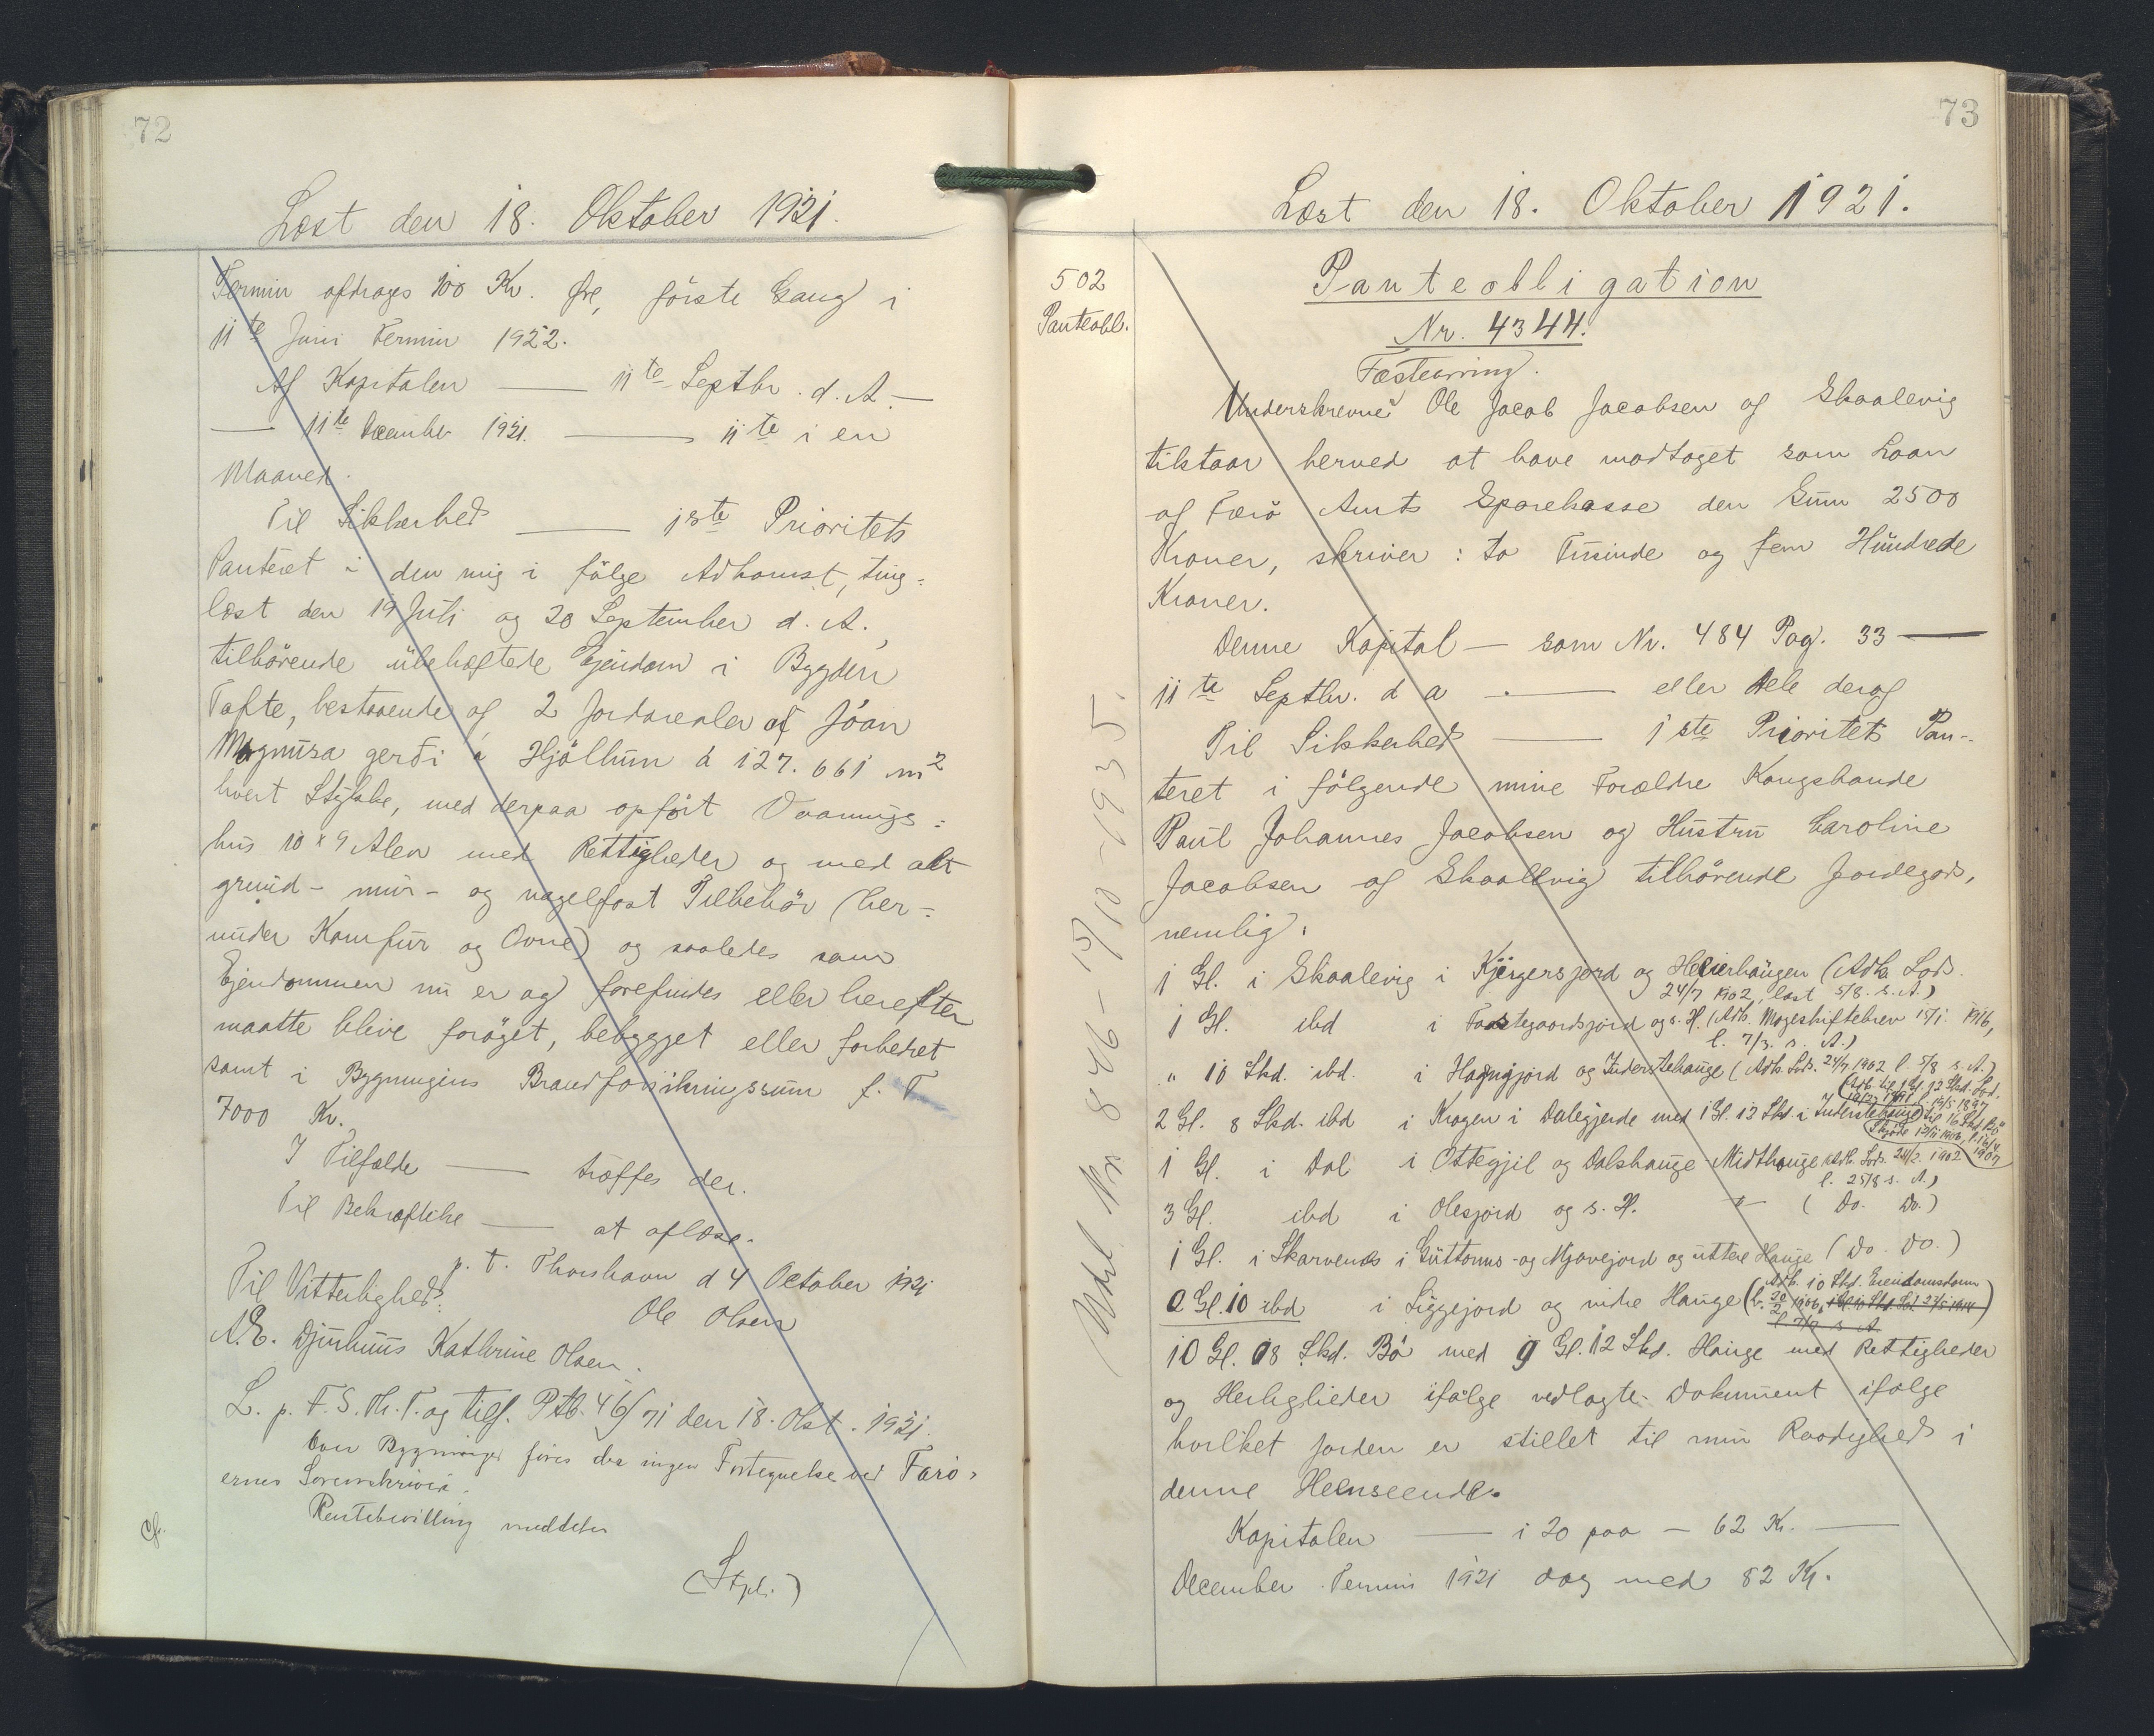 72
Læst den 18. Oktober 1921.
Termin afdrages 100 Kr. Øre, første Gang i
11te Juni Termin 1922.
Af Kapitalen — 11te Septbr. d. A. —
— 11te December 1921. — 11te i en
Maaned.
Til Sikkerhed — 1ste Prioritets
Panteret i den mig i følge Adkomst, ting=
læst den 19 Juli og 20 September d. A.,
tilhørende übehæftede Ejendom i Bygden
Tofte, bestaaende af 2 Jordarealer af Jóan
Magnusa gerði á Hjøllum á 127.661 m2
hvert Stykke, med derpaa opført Vaanings=
hus 10 x 9 Alen med Rettigheder og med alt
grund- mur- og nagelfast Tilbehør (her=
under Komfur og Ovne) og saaledes som
Ejendommen nu er og forefindes eller herefter
maatte blive forøget, bebygget eller forbedret
samt i Bygningens Brandforsikringssum f. T.
7000 Kr.
I Tilfælde — træffes der.
Til Bekræftelse — at aflæse.
p. t. Thorshavn d 4 October 1921
Til Vitterlighed:
Ole Olsen
A. E. Djurhuus Kathrine Olsen.
L. p. F. S. Th. T. og tilf. Ptb. 46/71 den 18. Okt. 1921.
Over Bygninger føres der ingen Fortegnelse ved Færø=
ernes Sorenskriveri.
Rentebevilling meddeles
Cf.
(Stpl.)
73
Læst den 18. Oktober 1921.
502
Panteobl.
Panteobligation
Nr. 4344.
Udsl. Nr. 846 - 15/10 - 1935.
Undertegnede Ole Jacob Jacobsen af Skaalevig
tilstaar herved at have modtaget som Laan
af Færø Amts Sparekasse den Sum 2500
Kroner, skriver: to Tusinde og fem Hundrede
Kroner.
Denne Kapital — som Nr. 484 Pag. 33 —
11te Septbr. d a — eller Dele deraf
Til Sikkerhed — 1ste Prioritets Pan-
teret i følgende mine Forældre Kongsbonde
Paul Johannes Jacobsen og Hustru Caroline
Jacobsen af Skaalevig tilhørende Jordegods,
nemlig:
1 Gl. i Skaalevig i Kjærgersjord og Heljerhaugen (Adk. Lods.
24/7 1902, læst 5/8. s. A.)
1 Gl. ibd i Toftegaardsjord og s. H. (Adk. Mageskiftebrev 15/1 1916,
l. 7/3. s. A.)
" 10 Skd. ibd. i Hagnajord og Inderstehauge (Adk. Lods. 24/7 1902 l. 5/8 s. A.)
2 Gl. 8 Skd. ibd i Krogen i Dalegjerde med 1 Gl. 12 Skd. i Inderstehauge
1 Gl. i Dal i Ottegjil og Dalshauge Midthauge (Adk. Lods. 24/2. 1902
l. 25/8 s. A.)
3 Gl. ibd i Olesjord og s. H. — (Do. Do.)
1 Gl. i Skarvenes i Guttorms- og Mjavejord og uttere Hauge (Do. Do.)
0 Gl. 10 ibd i Liggejord og indre Hauge (Adk. 10 Skd. Ejendomsdom
l. 20/2 1906,
10 Gl. 08 Skd. Bø med 9 Gl. 12 Skd. Hauge med Rettigheder
og Herligheder ifølge vedlagte Dokument ifølge
hvilket Jorden er stillet til min Raadighed i
denne Henseende.
Kapitalen — i 20 paa — 62 Kr. —
December Termin 1921 dog med 82 Kr.